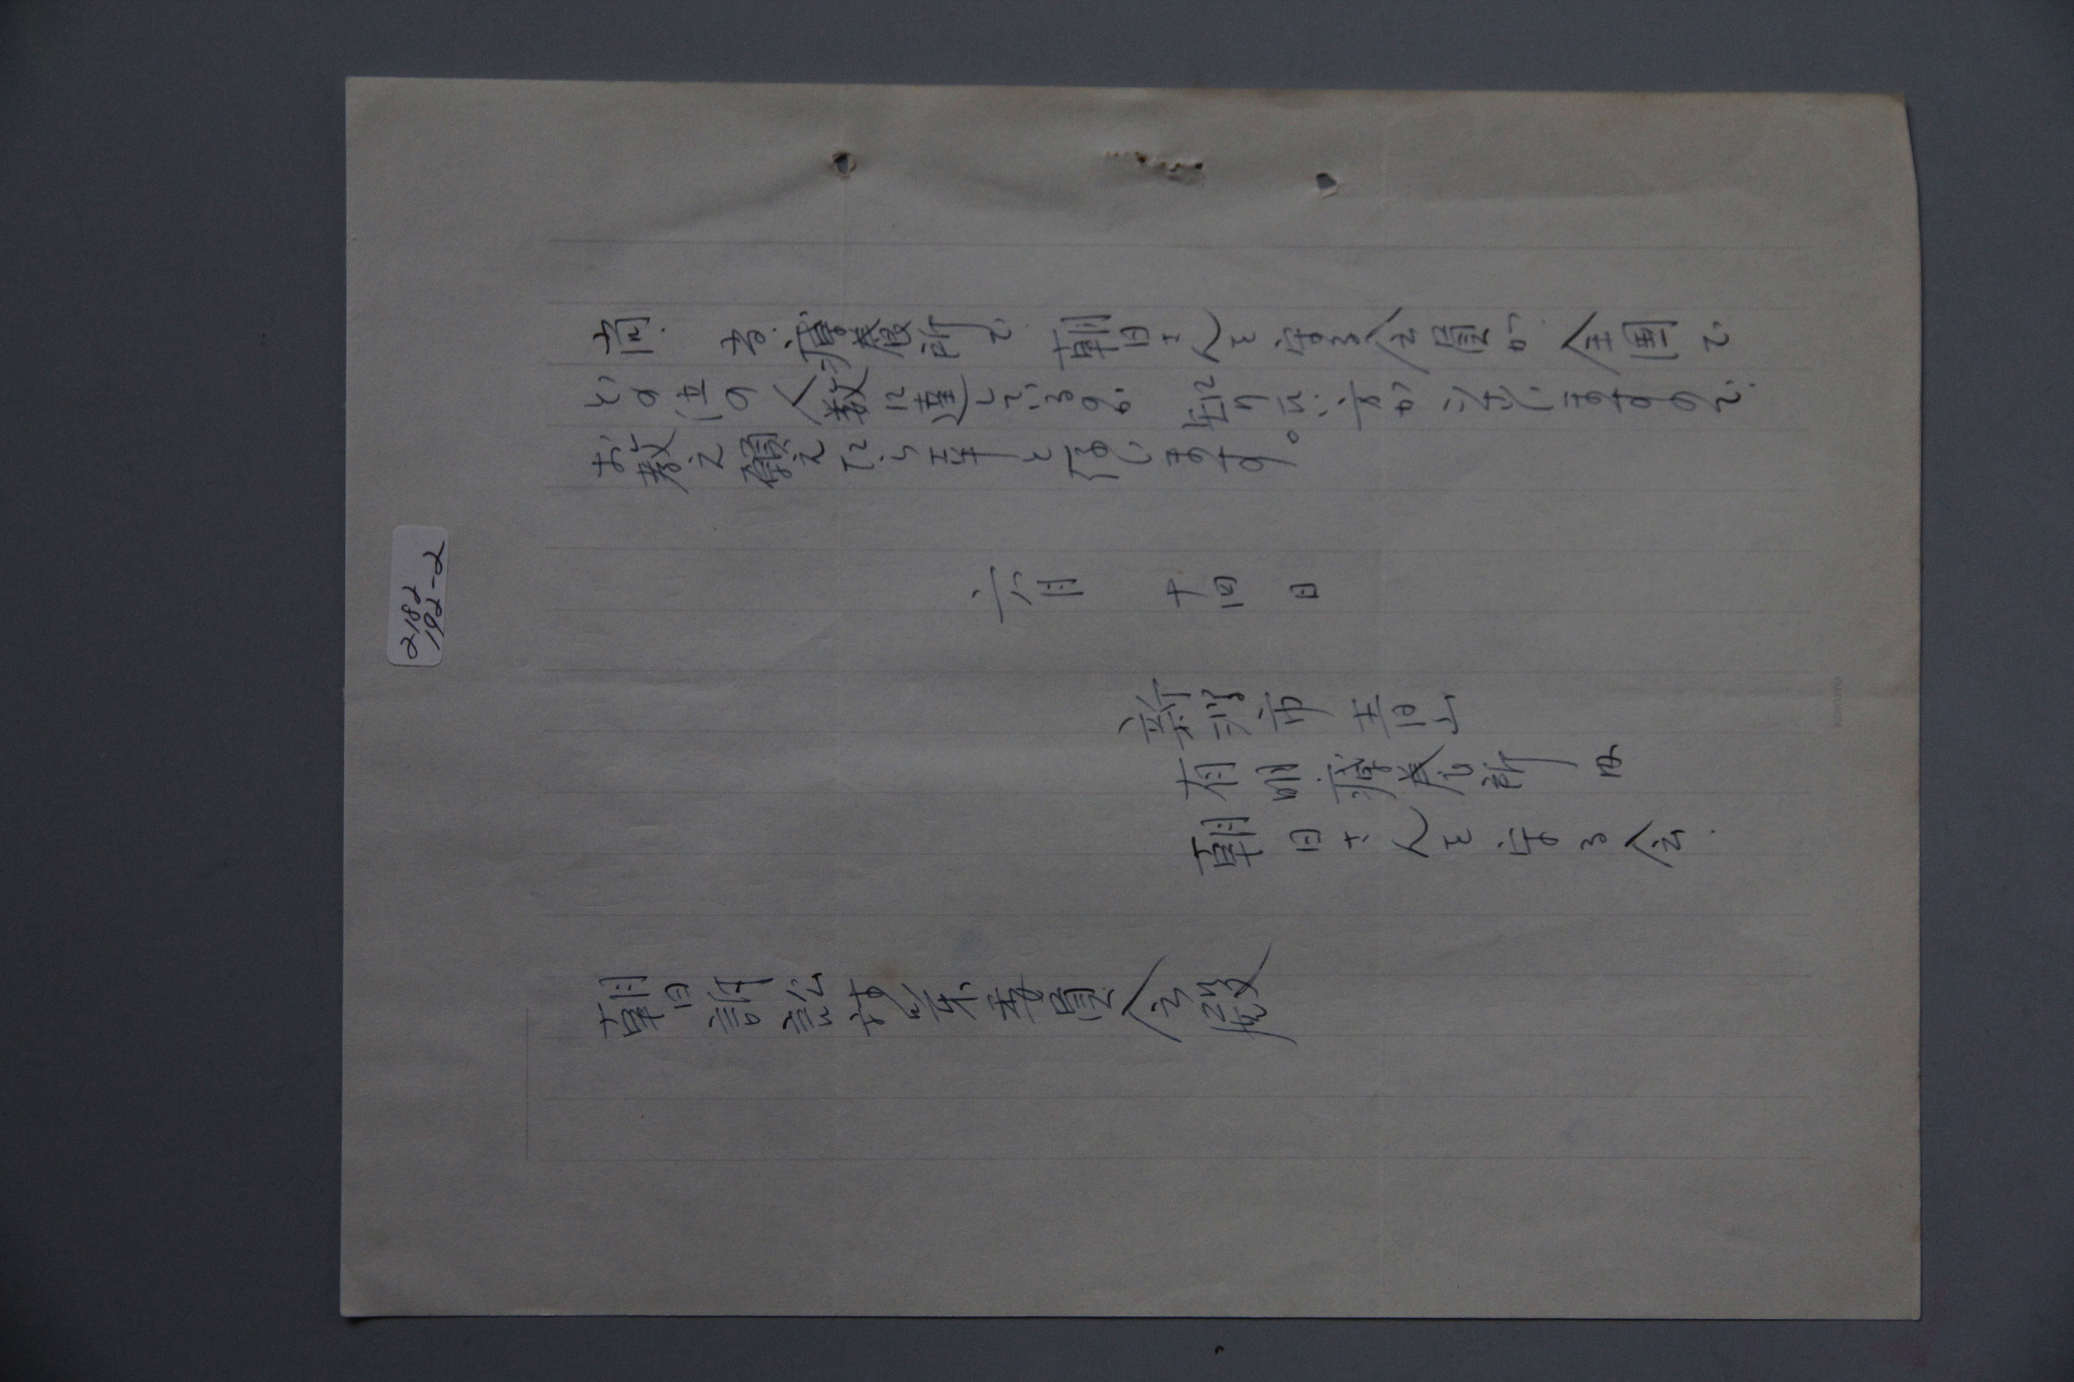 尚、各療養所で朝日さんを守る会員が全国で
どの位の人数に達しているか知りたい方が
お教え願えたら幸と存じます。
六月 十四日
新潟市
有明療養所内
朝日さんを守る会
朝日訴訟中央委員会殿
2182
192-2